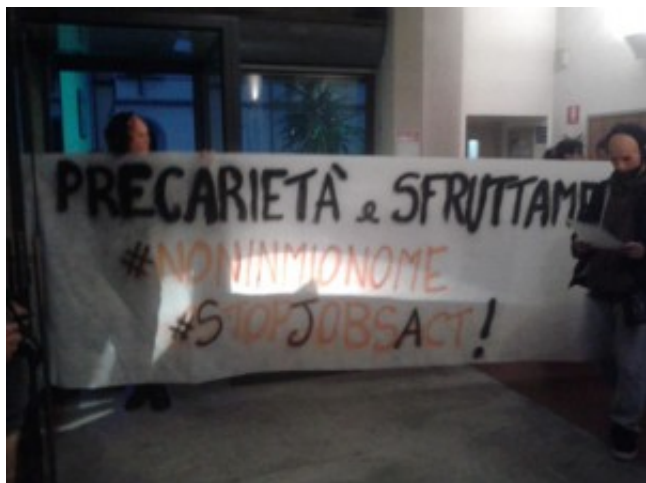 PRECARIETÀ e SFRUTTAME
#NONINMIONOME
#STOPJOBSACT!